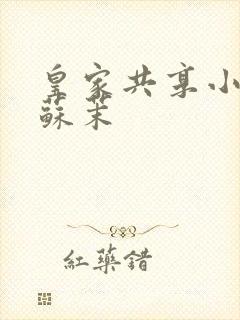 皇家共享小
蘇茉
紅藥錯